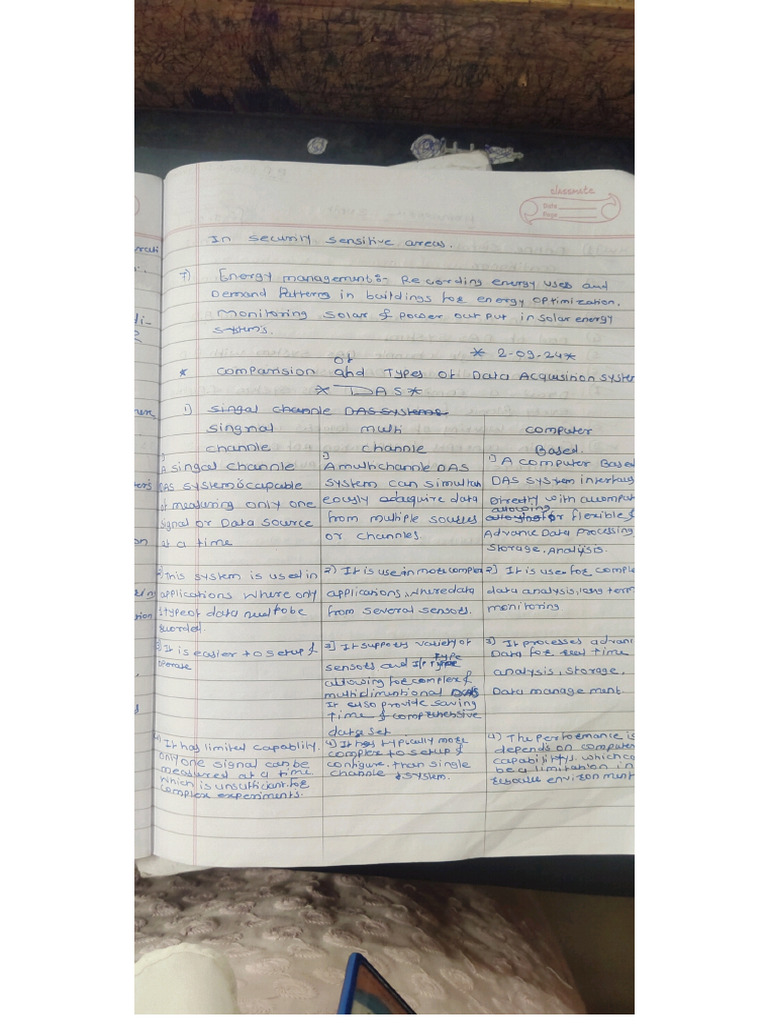 classmate
Date
Page
In security sensitive areas.
7) Energy management:- Recording energy uses and
Demand Patterns in buildings for energy optimization.
Monitoring solar & power output in solar energy
systems.
* 2-09-24*
of
* Comparision and Types of Data Acquisition System
* DAS *
1) Singal channle DAS systems
Singnal
channle
1)
A singal channle
DAS system is capable
of measuring only one
signal or Data source
at a time
2) This system is used in
applications where only
1 type of data need to be
recorded.
3) It is easier to setup &
operate
4) It has limited capablity.
only one signal can be
measured at a time.
which is unsufficient for
complex experiments.
multi
channle
1)
A multichannle DAS
system can simultan
eously adacquire data
from multiple sources
or channles.
2) It is use in more complex
applications, where data
from several sensors.
3) It supports variety of
type
sensors and I/P
allowing for complex &
multidimentional DAS
It also provide saving
time & comprehensive
data set.
4) It has typically more
complex to setup &
configure. than single
channle system.
computer
Based.
1) A computer Based
DAS system interfaces
Directly with a comput
allowing
for flexible &
Advance Data Processing,
storage, Analysis.
2) It is use for comple
data analysis, long term
monitoring
3) It processes advanc
Data for real time
analysis, storage,
Data management.
4) The performance is
depends on computer
capability. which ca
be a limitation in
environment